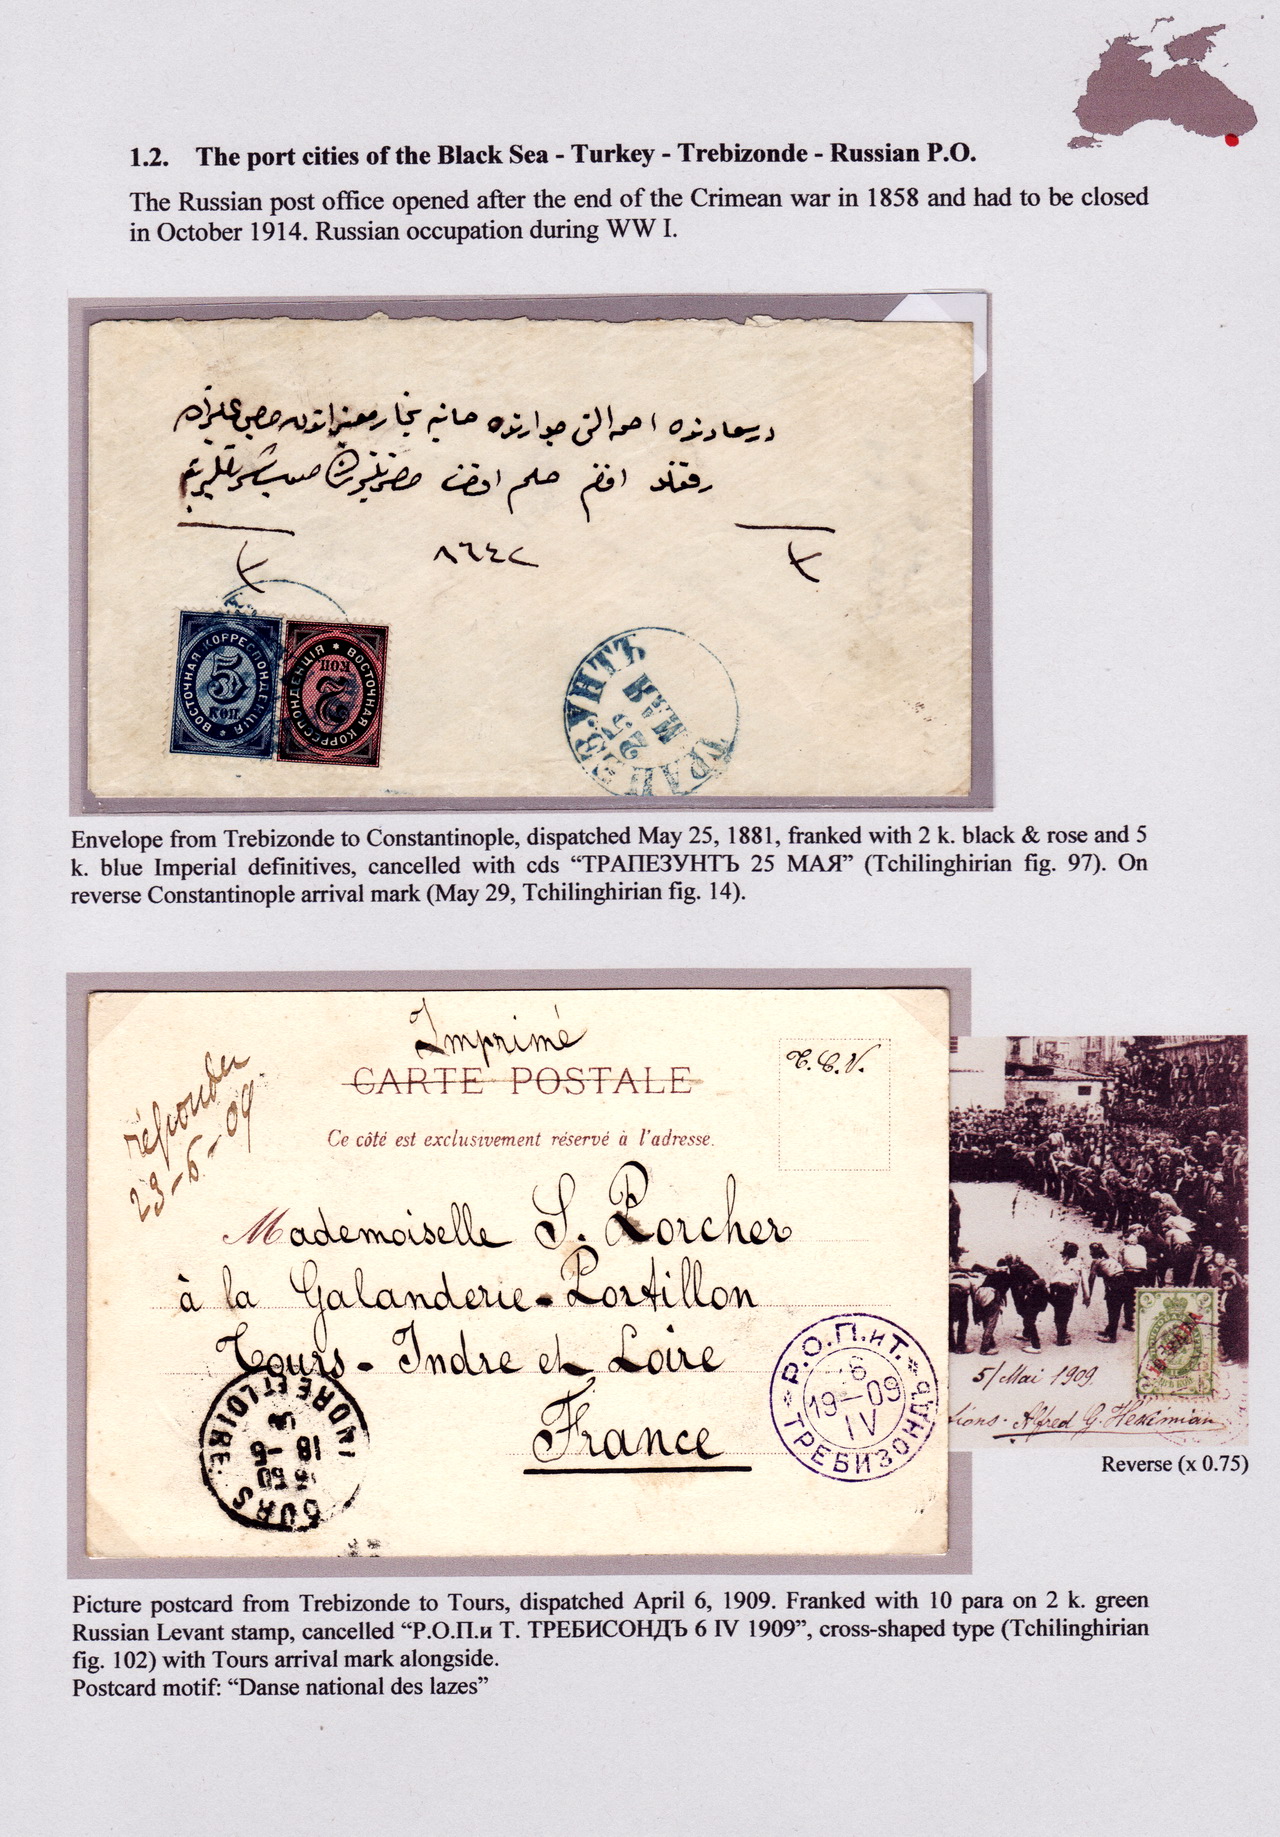 1.2. The port cities of the Black Sea - Turkey - Trebizonde - Russian P.O.
The Russian post office opened after the end of the Crimean war in 1858 and had to be closed
in October 1914. Russian occupation during WW I.
٨٦٤٢
ВОСТОЧНАЯ КОРРЕСПОНДЕНЦІЯ
5
КОП
ВОСТОЧНАЯ КОРРЕСПОНДЕНЦІЯ
2
КОП
25
МАЯ
Envelope from Trebizonde to Constantinople, dispatched May 25, 1881, franked with 2 k. black & rose and 5
k. blue Imperial definitives, cancelled with cds “ТРАПЕЗУНТЪ 25 МАЯ” (Tchilinghirian fig. 97). On
reverse Constantinople arrival mark (May 29, Tchilinghirian fig. 14).
Imprimé
CARTE POSTALE
T.C.V.
répondu
23-6-09
Ce côté est exclusivement réservé à l'adresse.
Mademoiselle S. Porcher
à la Galanderie-Portillon
Tours - Indre et Loire
France
TOURS
INDRE ET LOIRE
Р.О.П.иТ.
6
19-09
IV
ТРЕБИЗОНДЪ
5/Mai 1909
Alfred G. Hekimian
Reverse (x 0.75)
Picture postcard from Trebizonde to Tours, dispatched April 6, 1909. Franked with 10 para on 2 k. green
Russian Levant stamp, cancelled “Р.О.П.и Т. ТРЕБИСОНДЪ 6 IV 1909”, cross-shaped type (Tchilinghirian
fig. 102) with Tours arrival mark alongside.
Postcard motif: “Danse national des lazes”